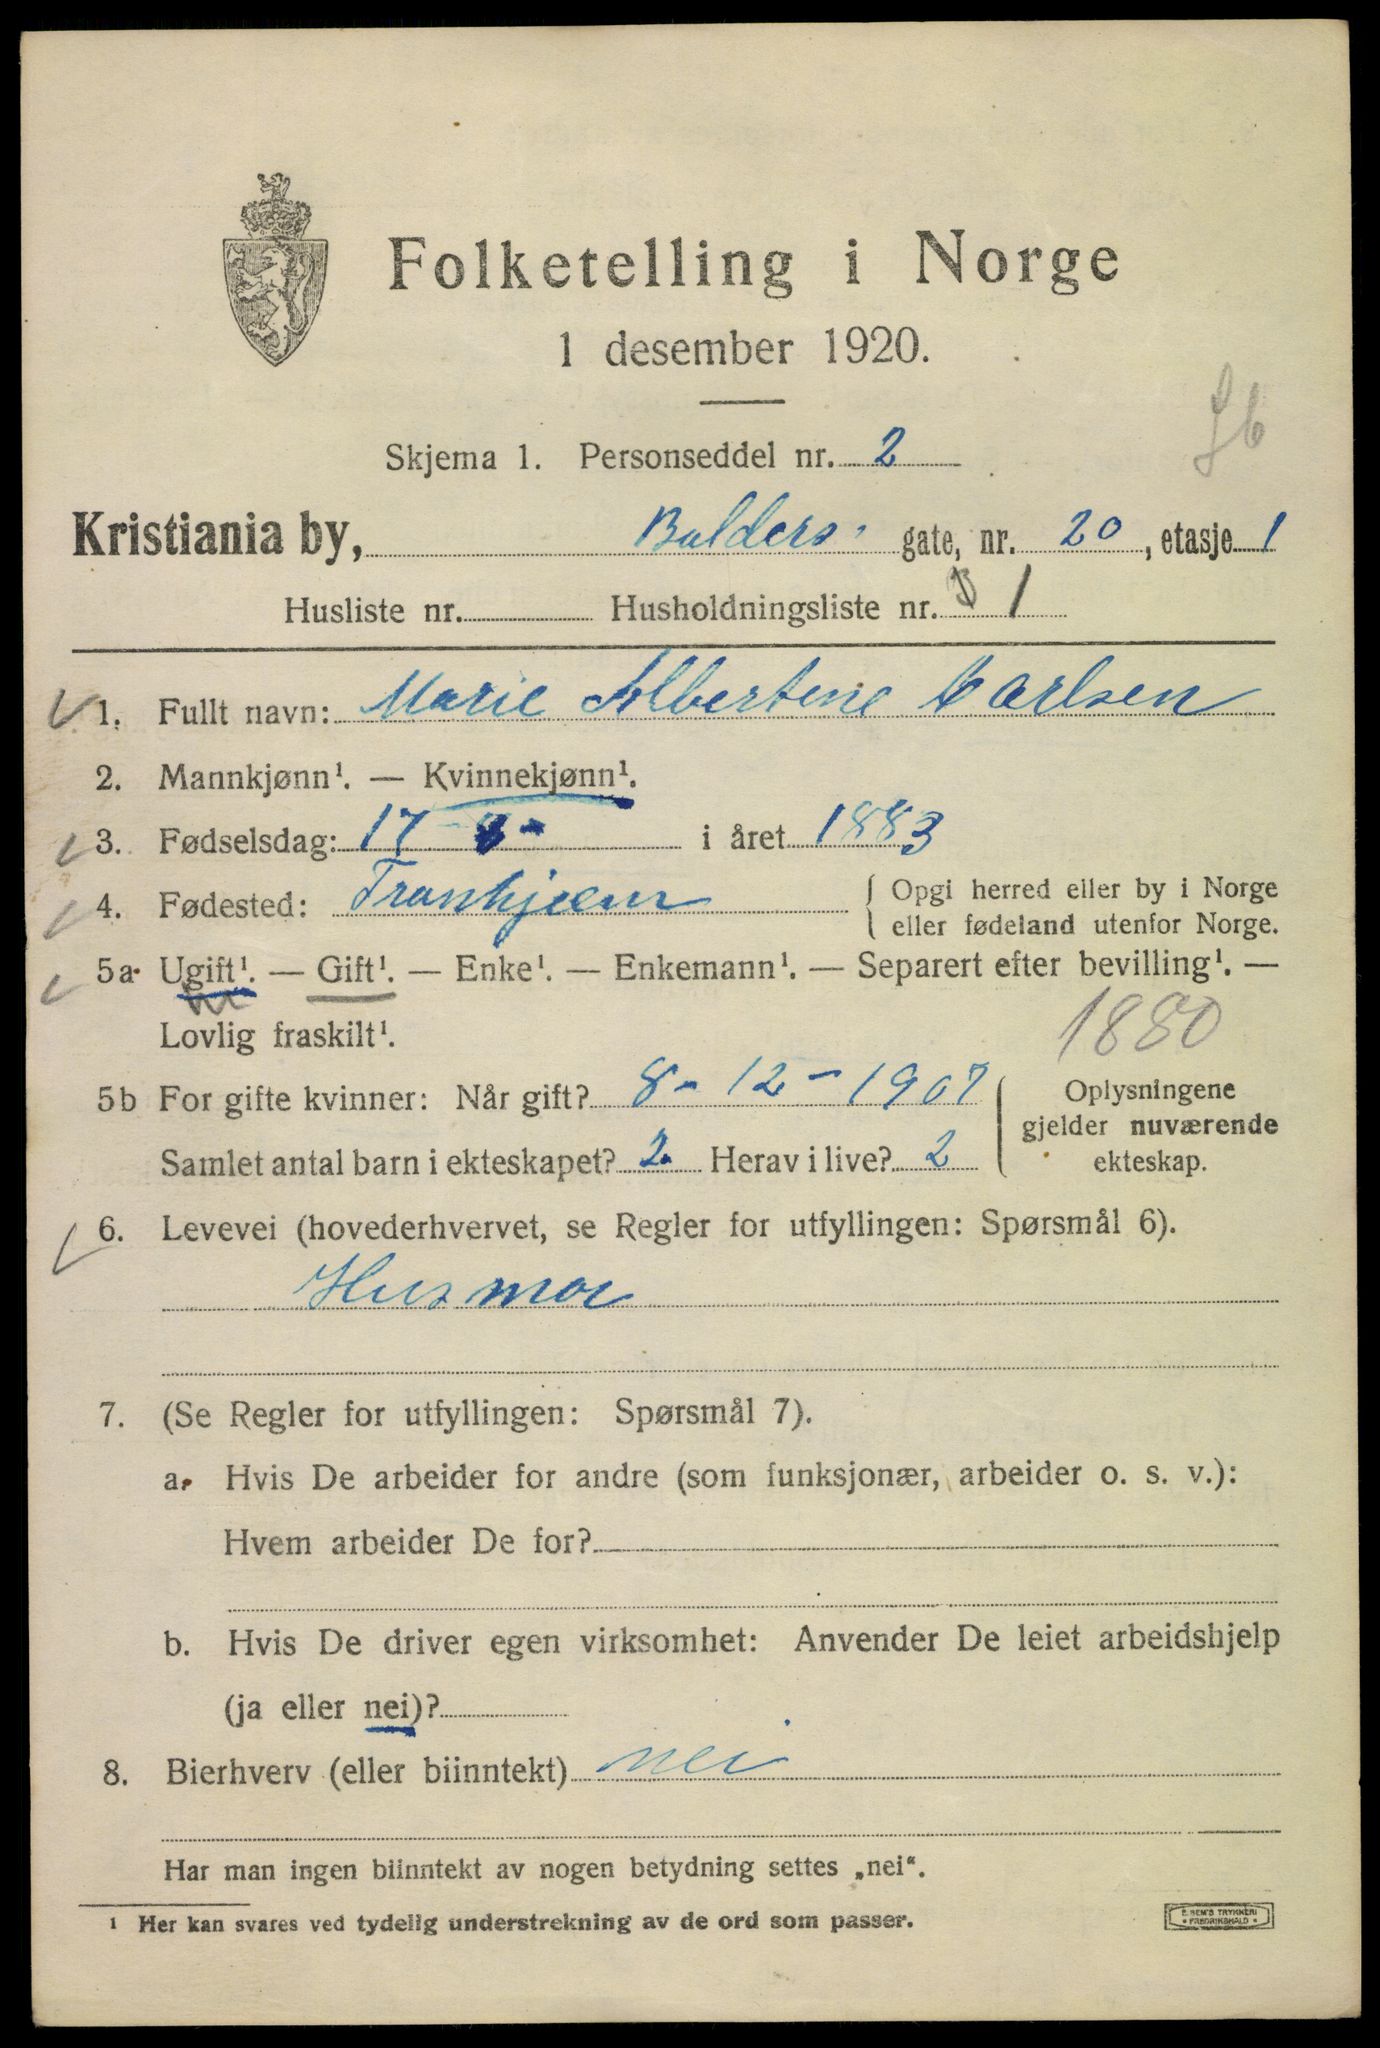 Folketelling i Norge
1 desember 1920.
Skjema 1. Personseddel nr. 2
Kristiania by, Balders gate, nr. 20, etasje 1
Husliste nr. Husholdningsliste nr. 1
1. Fullt navn: Marie Albertine Carlsen
2. Mannkjønn¹. — Kvinnekjønn¹.
3. Fødselsdag: 17 - 8 - i året 1883
4. Fødested: Tronhjem { Opgi herred eller by i Norge
eller fødeland utenfor Norge.
5a. Ugift¹. — Gift¹. — Enke¹. — Enkemann¹. — Separert efter bevilling¹. —
Lovlig fraskilt¹.
1880
5b For gifte kvinner: Når gift? 8 - 12 - 1907
Samlet antal barn i ekteskapet? 2 Herav i live? 2
Oplysningene
gjelder nuværende
ekteskap.
6. Levevei (hovederhvervet, se Regler for utfyllingen: Spørsmål 6).
Husmor
7. (Se Regler for utfyllingen: Spørsmål 7).
a. Hvis De arbeider for andre (som funksjonær, arbeider o. s. v.):
Hvem arbeider De for?
b. Hvis De driver egen virksomhet: Anvender De leiet arbeidshjelp
(ja eller nei)?
8. Bierhverv (eller biinntekt) nei
Har man ingen biinntekt av nogen betydning settes „nei".
¹ Her kan svares ved tydelig understrekning av de ord som passer.
E. SEM'S TRYKKERI
• FREDRIKSHALD •